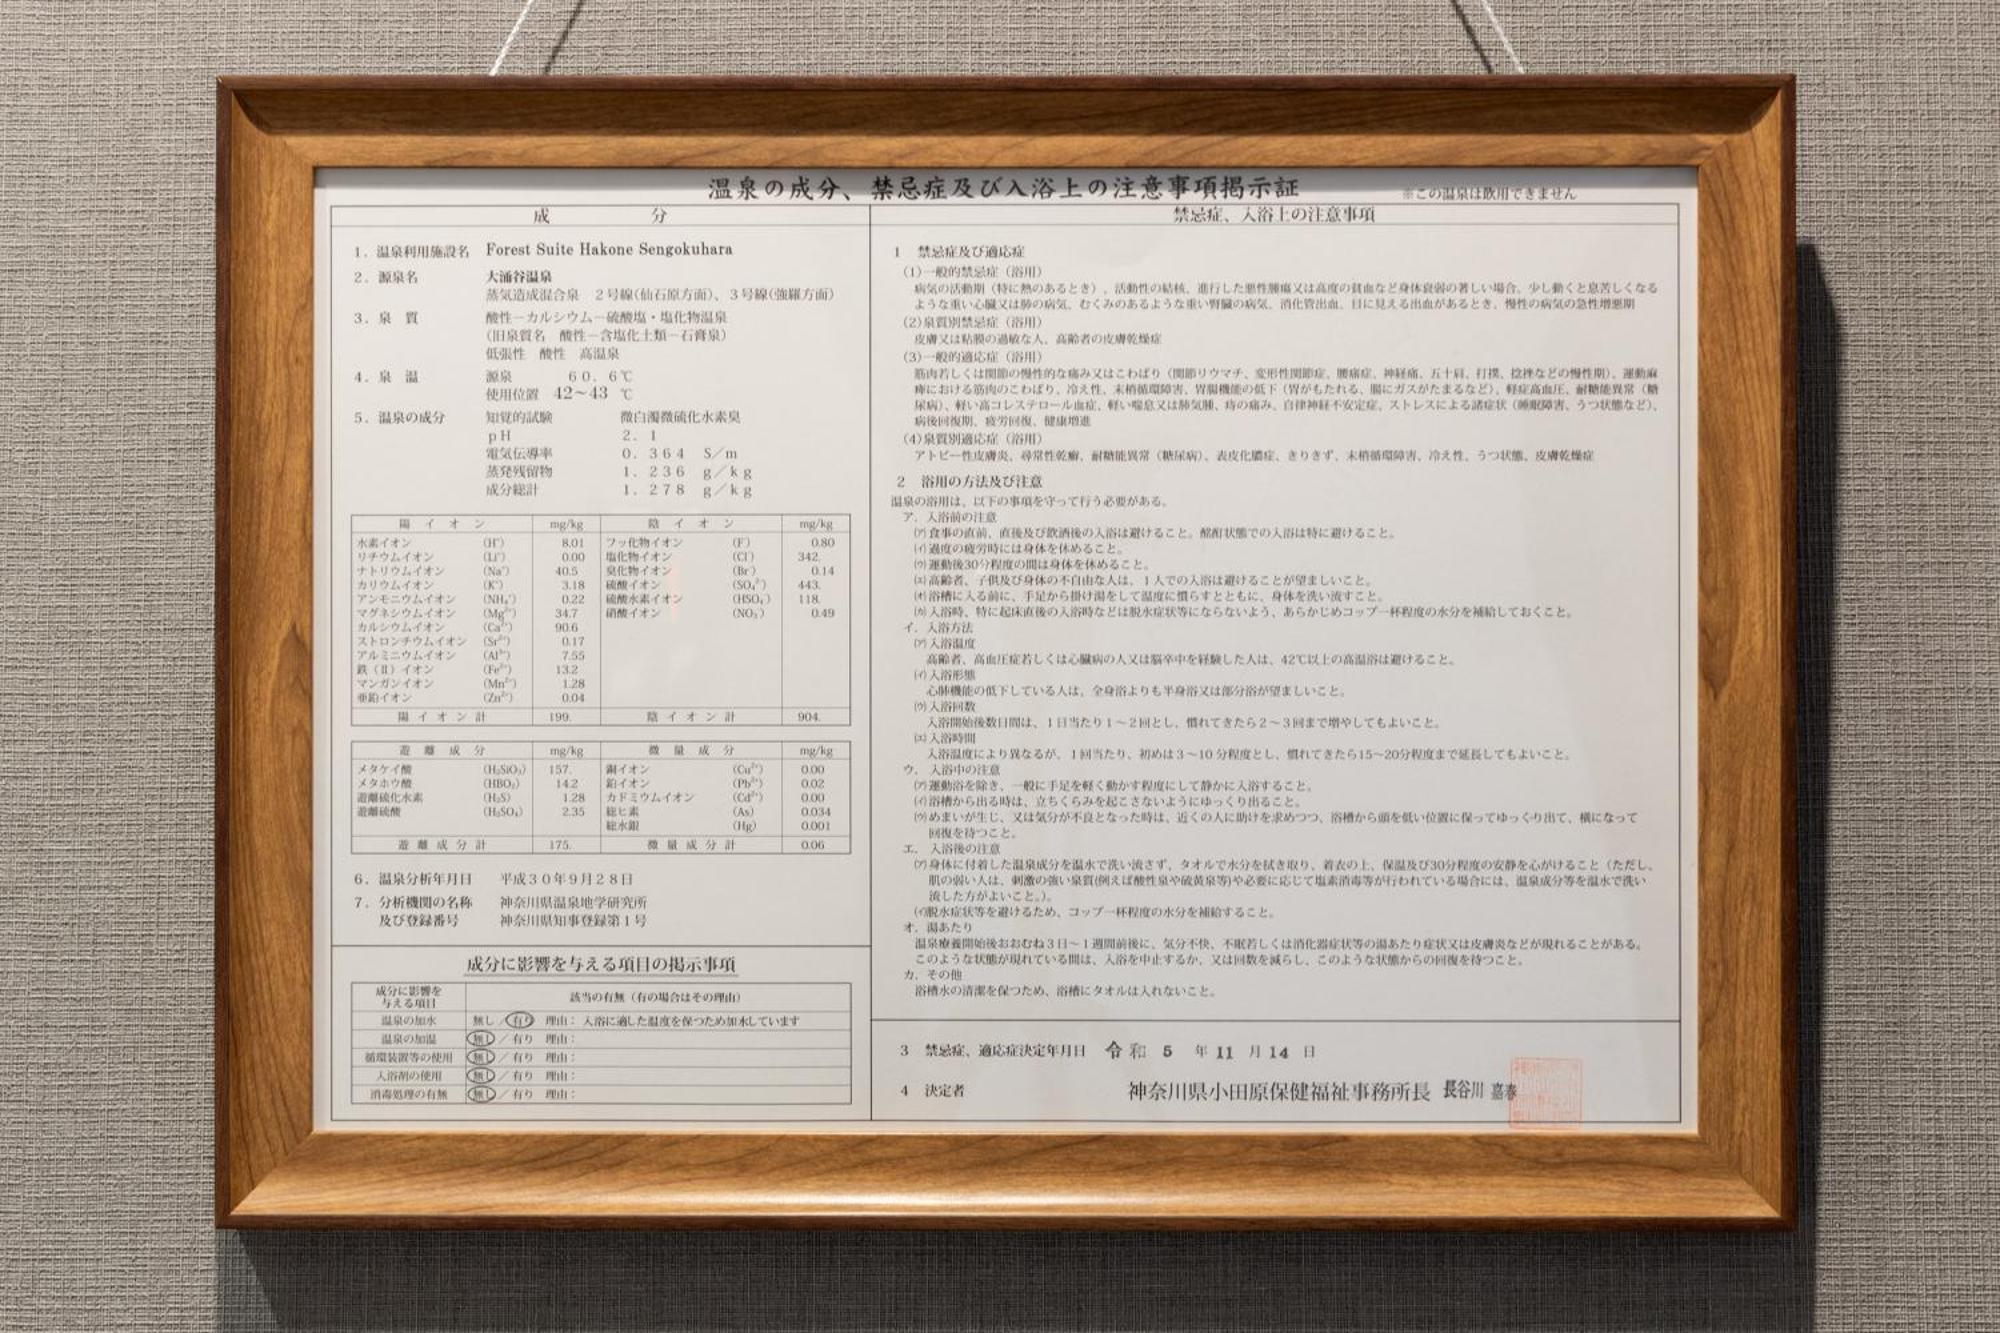 温泉の成分、禁忌症及び入浴上の注意事項掲示証
※この温泉は飲用できません
成 分
1．温泉利用施設名 Forest Suite Hakone Sengokuhara
2．源泉名 大涌谷温泉
蒸気造成混合泉 2号線(仙石原方面)、3号線(強羅方面)
3．泉 質 酸性－カルシウム－硫酸塩・塩化物温泉
（旧泉質名 酸性－含塩化土類－石膏泉）
低張性 酸性 高温泉
4．泉 温 源泉 60．6℃
使用位置 42～43 ℃
5．温泉の成分 知覚的試験 微白濁微硫化水素臭
pH 2．1
電気伝導率 0．364 S／m
蒸発残留物 1．236 g／kg
成分総計 1．278 g／kg
陽イオン mg/kg 陰イオン mg/kg
水素イオン (H⁺) 8.01 フッ化物イオン (F⁻) 0.80
リチウムイオン (Li⁺) 0.00 塩化物イオン (Cl⁻) 342.
ナトリウムイオン (Na⁺) 40.5 臭化物イオン (Br⁻) 0.14
カリウムイオン (K⁺) 3.18 硫酸イオン (SO₄²⁻) 443.
アンモニウムイオン (NH₄⁺) 0.22 硫酸水素イオン (HSO₄⁻) 118.
マグネシウムイオン (Mg²⁺) 34.7 硝酸イオン (NO₃⁻) 0.49
カルシウムイオン (Ca²⁺) 90.6
ストロンチウムイオン (Sr²⁺) 0.17
アルミニウムイオン (Al³⁺) 7.55
鉄（II）イオン (Fe²⁺) 13.2
マンガンイオン (Mn²⁺) 1.28
亜鉛イオン (Zn²⁺) 0.04
陽イオン計 199. 陰イオン計 904.
遊離成分 mg/kg 微量成分 mg/kg
メタケイ酸 (H₂SiO₃) 157. 銅イオン (Cu²⁺) 0.00
メタホウ酸 (HBO₂) 14.2 鉛イオン (Pb²⁺) 0.02
遊離硫化水素 (H₂S) 1.28 カドミウムイオン (Cd²⁺) 0.00
遊離硫酸 (H₂SO₄) 2.35 総ヒ素 (As) 0.034
総水銀 (Hg) 0.001
遊離成分計 175. 微量成分計 0.06
6．温泉分析年月日 平成30年9月28日
7．分析機関の名称 神奈川県温泉地学研究所
及び登録番号 神奈川県知事登録第1号
成分に影響を与える項目の掲示事項
成分に影響を与える項目 該当の有無（有の場合はその理由）
温泉の加水 無し／有り 理由：入浴に適した温度を保つため加水しています
温泉の加温 無し／有り 理由：
循環装置等の使用 無し／有り 理由：
入浴剤の使用 無し／有り 理由：
消毒処理の有無 無し／有り 理由：
禁忌症、入浴上の注意事項
1 禁忌症及び適応症
(1)一般的禁忌症（浴用）
病気の活動期（特に熱のあるとき）、活動性の結核、進行した悪性腫瘍又は高度の貧血など身体衰弱の著しい場合、少し動くと息苦しくなる
ような重い心臓又は肺の病気、むくみのあるような重い腎臓の病気、消化管出血、目に見える出血があるとき、慢性の病気の急性増悪期
(2)泉質別禁忌症（浴用）
皮膚又は粘膜の過敏な人、高齢者の皮膚乾燥症
(3)一般的適応症（浴用）
筋肉若しくは関節の慢性的な痛み又はこわばり（関節リウマチ、変形性関節症、腰痛症、神経痛、五十肩、打撲、捻挫などの慢性期）、運動麻
痺における筋肉のこわばり、冷え性、末梢循環障害、胃腸機能の低下（胃がもたれる、腸にガスがたまるなど）、軽症高血圧、耐糖能異常（糖
尿病）、軽い高コレステロール血症、軽い喘息又は肺気腫、痔の痛み、自律神経不安定症、ストレスによる諸症状（睡眠障害、うつ状態など）、
病後回復期、疲労回復、健康増進
(4)泉質別適応症（浴用）
アトピー性皮膚炎、尋常性乾癬、耐糖能異常（糖尿病）、表皮化膿症、きりきず、末梢循環障害、冷え性、うつ状態、皮膚乾燥症
2 浴用の方法及び注意
温泉の浴用は、以下の事項を守って行う必要がある。
ア．入浴前の注意
(ｱ)食事の直前、直後及び飲酒後の入浴は避けること。酩酊状態での入浴は特に避けること。
(ｲ)過度の疲労時には身体を休めること。
(ｳ)運動後30分程度の間は身体を休めること。
(ｴ)高齢者、子供及び身体の不自由な人は、1人での入浴は避けることが望ましいこと。
(ｵ)浴槽に入る前に、手足から掛け湯をして温度に慣らすとともに、身体を洗い流すこと。
(ｶ)入浴時、特に起床直後の入浴時などは脱水症状等にならないよう、あらかじめコップ一杯程度の水分を補給しておくこと。
イ．入浴方法
(ｱ)入浴温度
高齢者、高血圧症若しくは心臓病の人又は脳卒中を経験した人は、42℃以上の高温浴は避けること。
(ｲ)入浴形態
心肺機能の低下している人は、全身浴よりも半身浴又は部分浴が望ましいこと。
(ｳ)入浴回数
入浴開始後数日間は、1日当たり1～2回とし、慣れてきたら2～3回まで増やしてもよいこと。
(ｴ)入浴時間
入浴温度により異なるが、1回当たり、初めは3～10分程度とし、慣れてきたら15～20分程度まで延長してもよいこと。
ウ．入浴中の注意
(ｱ)運動浴を除き、一般に手足を軽く動かす程度にして静かに入浴すること。
(ｲ)浴槽から出る時は、立ちくらみを起こさないようにゆっくり出ること。
(ｳ)めまいが生じ、又は気分が不良となった時は、近くの人に助けを求めつつ、浴槽から頭を低い位置に保ってゆっくり出て、横になって
回復を待つこと。
エ．入浴後の注意
(ｱ)身体に付着した温泉成分を温水で洗い流さず、タオルで水分を拭き取り、着衣の上、保温及び30分程度の安静を心がけること（ただし、
肌の弱い人は、刺激の強い泉質(例えば酸性泉や硫黄泉等)や必要に応じて塩素消毒等が行われている場合には、温泉成分等を温水で洗い
流した方がよいこと。）。
(ｲ)脱水症状等を避けるため、コップ一杯程度の水分を補給すること。
オ．湯あたり
温泉療養開始後おおむね3日～1週間前後に、気分不快、不眠若しくは消化器症状等の湯あたり症状又は皮膚炎などが現れることがある。
このような状態が現れている間は、入浴を中止するか、又は回数を減らし、このような状態からの回復を待つこと。
カ．その他
浴槽水の清潔を保つため、浴槽にタオルは入れないこと。
3 禁忌症、適応症決定年月日 令和 5 年 11 月 14 日
4 決定者 神奈川県小田原保健福祉事務所長 長谷川 嘉春